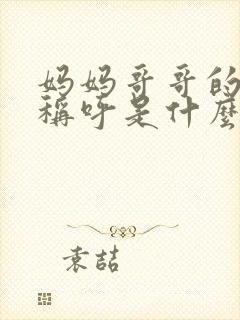 妈妈哥哥的
稱呼是什麼
袁喆